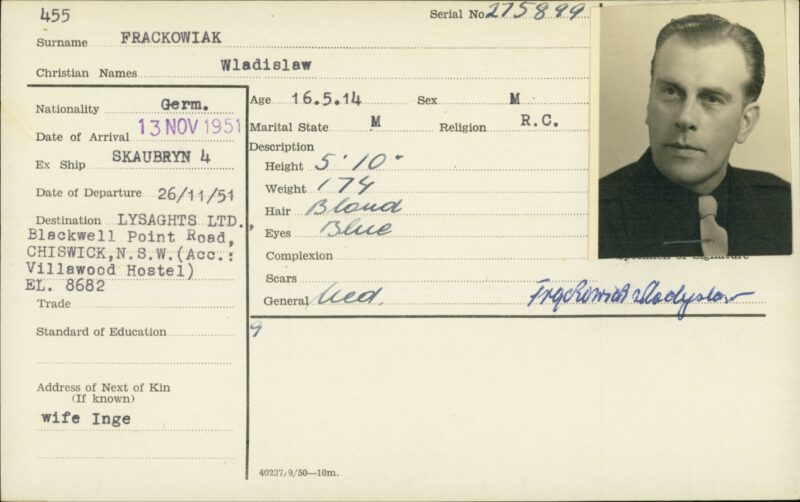 455
Serial No. 275899
Surname FRACKOWIAK
Christian Names Wladislaw
Nationality Germ.
Date of Arrival 13 NOV 1951
Ex Ship SKAUBRYN 4
Date of Departure 26/11/51
Destination LYSAGHTS LTD.,
Blackwell Point Road,
CHISWICK,N.S.W.(Acc.:
Villawood Hostel)
EL. 8682
Trade
Standard of Education
Address of Next of Kin
(If known)
wife Inge
Age 16.5.14 Sex M
Marital State M Religion R.C.
Description
Height 5'10"
Weight 174
Hair Blond
Eyes Blue
Complexion
Specimen of Signature
Scars
General Med.
Frąckowiak Wladyslaw
9
40237/9/50—10m.